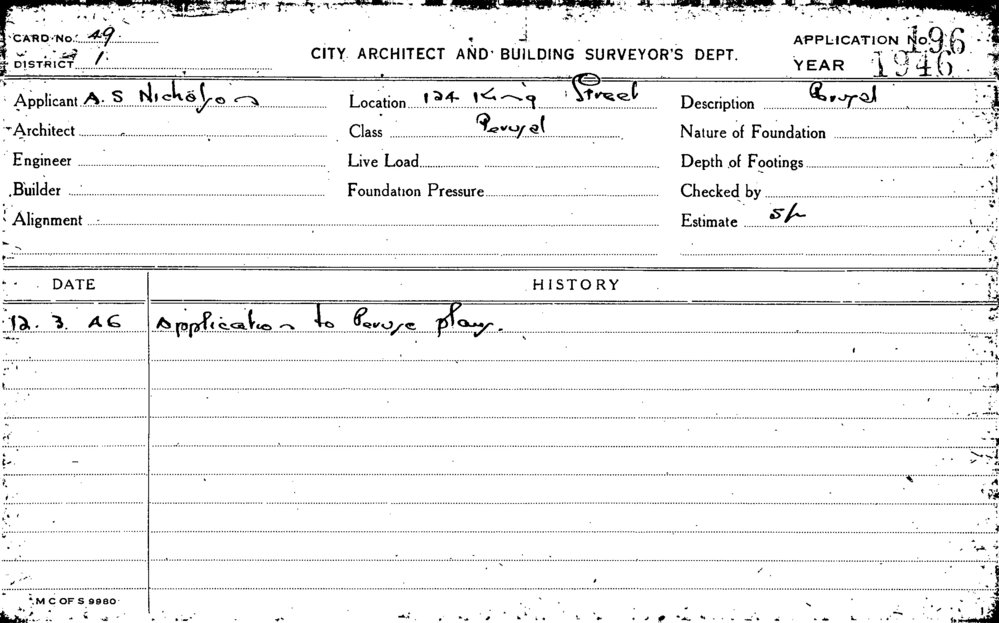 CARD No. 49
DISTRICT 1.
CITY ARCHITECT AND BUILDING SURVEYOR'S DEPT.
APPLICATION No. 196
YEAR 1946
Applicant A. S Nicholson Location 124 King Street Description Perusal
Architect Class Perusal Nature of Foundation
Engineer Live Load Depth of Footings
Builder Foundation Pressure Checked by
Alignment Estimate 5/-
DATE HISTORY
12. 3. 46 Application to Peruse plans.
M C OF S 9980